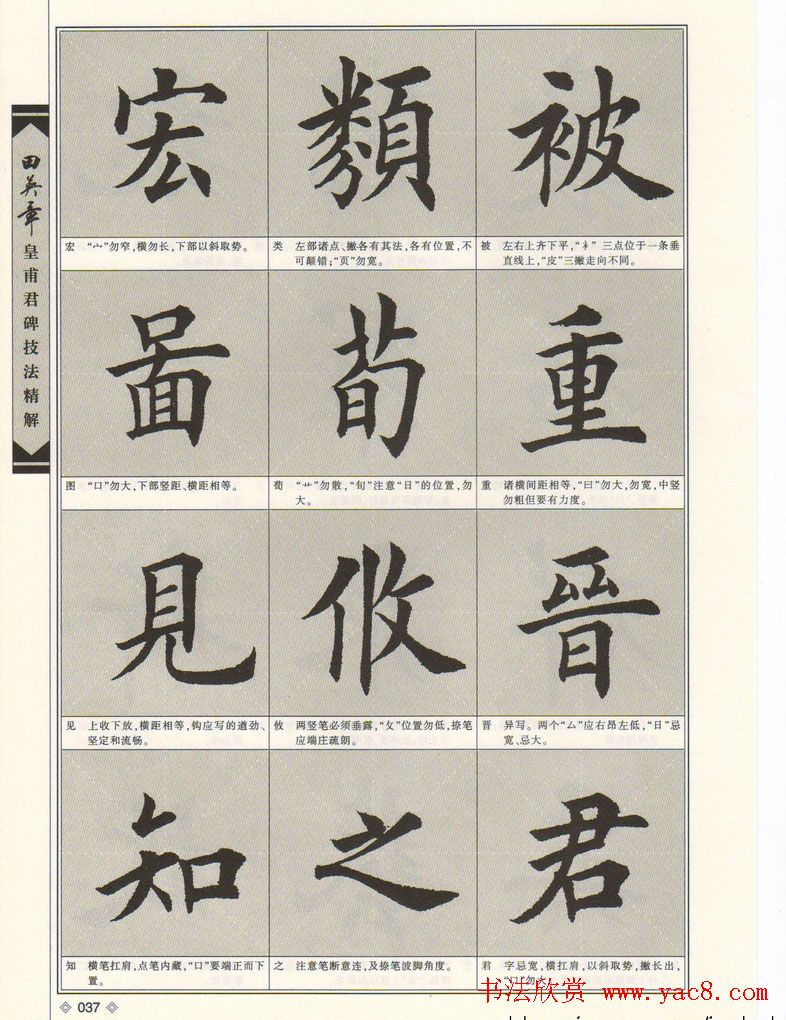 田英章
皇甫君碑技法精解
宏 類 被
宏 “宀”勿窄,横勿长,下部以斜取势。
类 左部诸点、撇各有其法,各有位置,不
可颠错;“页”勿宽。
被 左右上齐下平,“衤”三点位于一条垂
直线上,“皮”三撇走向不同。
啚 荀 重
图 “口”勿大,下部竖距、横距相等。
荀 “艹”勿散,“旬”注意“日”的位置,勿
大。
重 诸横间距相等,“曰”勿大,勿宽,中竖
勿粗但要有力度。
見 攸 晉
见 上收下放,横距相等,钩应写的遒劲、
坚定和流畅。
攸 两竖笔必须垂露,“攵”位置勿低,捺笔
应端庄疏朗。
晋 异写。两个“厶”应右昂左低,“日”忌
宽、忌大。
知 之 君
知 横笔扛肩,点笔内藏,“口”要端正而下
置。
之 注意笔断意连,及捺笔波脚角度。
君 字忌宽,横扛肩,以斜取势,撇长出,
“口”勿大。
037
书法欣赏 www.yac8.com